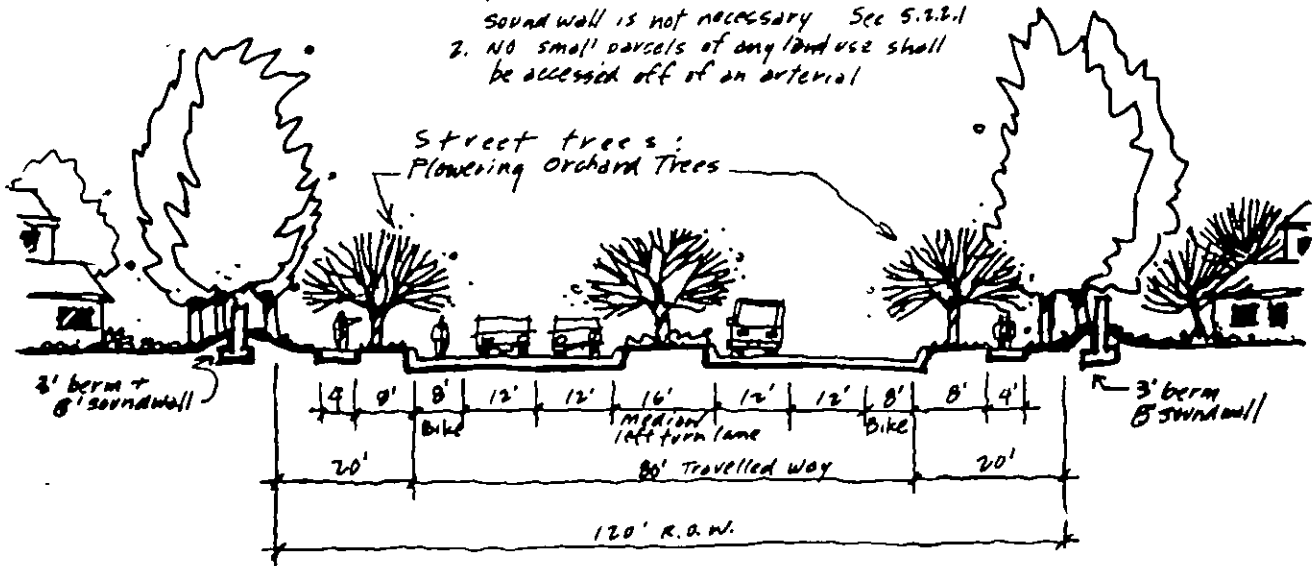 sound wall is not necessary See 5.2.2.1
2. NO small parcels of any land use shall
be accessed off of an arterial
Street trees:
Flowering Orchard Trees
3' berm +
8' soundwall
4' 8' 8' 12' 12' 16' 12' 12' 8' 8' 4'
Bike Median Bike
left turn lane
3' berm
8' soundwall
20' 80' Travelled Way 20'
120' R.O.W.